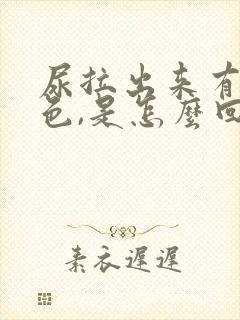 尿拉出来有
色,是怎麽回
素衣遲遲